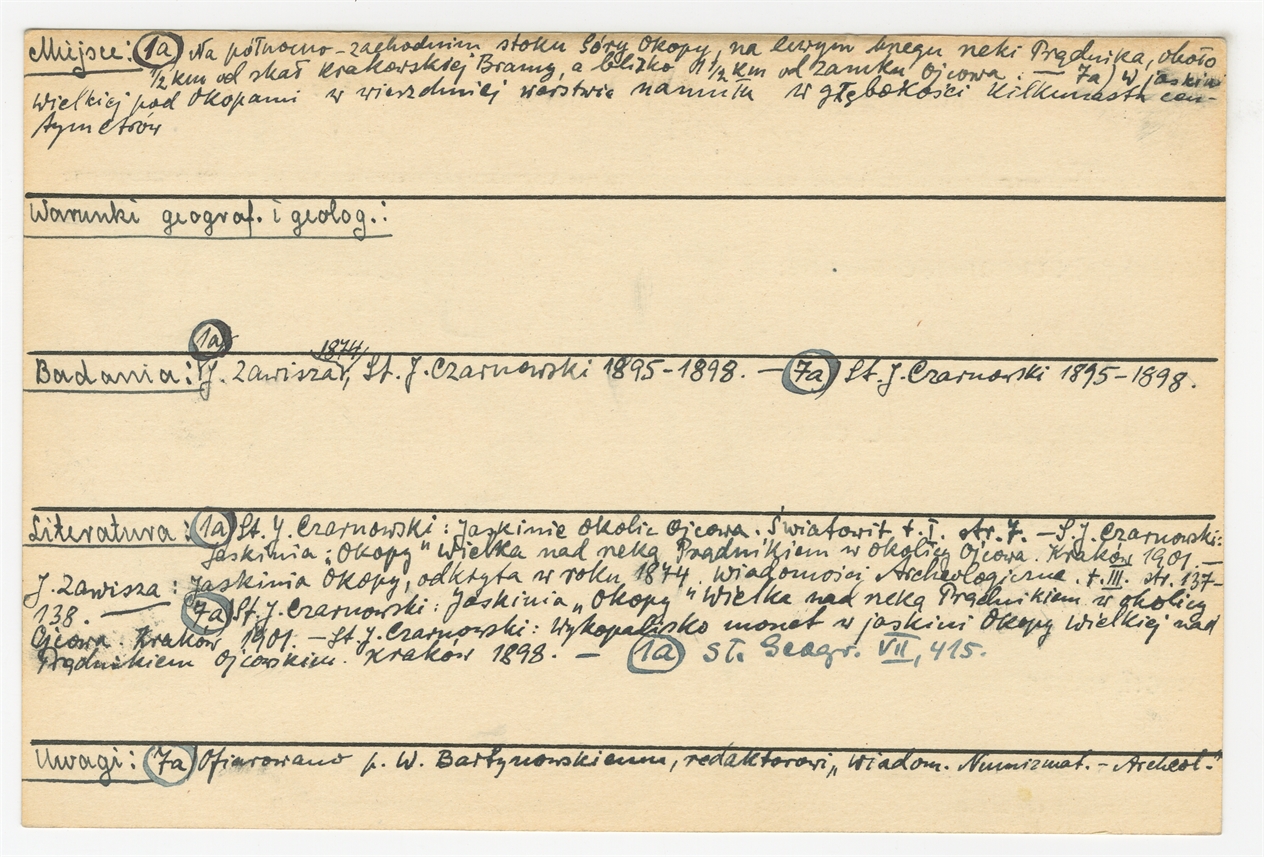 Miejsce: 1a Na północno-zachodnim stoku Góry Okopy, na lewym brzegu rzeki Prądnika, około
½ km od skał Krakowskiej Bramy, a blizko 1½ km od Zamku Ojcowa. — 7a) W jaskini
Wielkiej pod Okopami w wierzchniej warstwie namułu w głębokości kilkunastu cen-
tymetrów
Warunki geograf. i geolog.:
1a
1874
Badania: J. Zawisza, St. J. Czarnowski 1895-1898. — 7a) St. J. Czarnowski 1895-1898.
Literatura: 1a St. J. Czarnowski: Jaskinie okolic Ojcowa. Światowit t. I. str. 7. — S.J. Czarnowski:
Jaskinia „Okopy" Wielka nad rzeką Prądnikiem w okolicy Ojcowa. Kraków 1901. —
J. Zawisza: Jaskinia Okopy, odkryta w roku 1874. Wiadomości Archeologiczne. t. III. str. 137-
138. — 7a St. J. Czarnowski: Jaskinia „Okopy" Wielka nad rzeką Prądnikiem w okolicy
Ojcowa. Kraków 1901. — St. J. Czarnowski: Wykopalisko monet w jaskini Okopy Wielkiej nad
Prądnikiem Ojcowskim. Kraków 1898. — 1a Sł. Geogr. VII, 415.
Uwagi: 7a Ofiarowano p. W. Bartynowskiemu, redaktorowi „Wiadom. Numizmat. - Archeol."